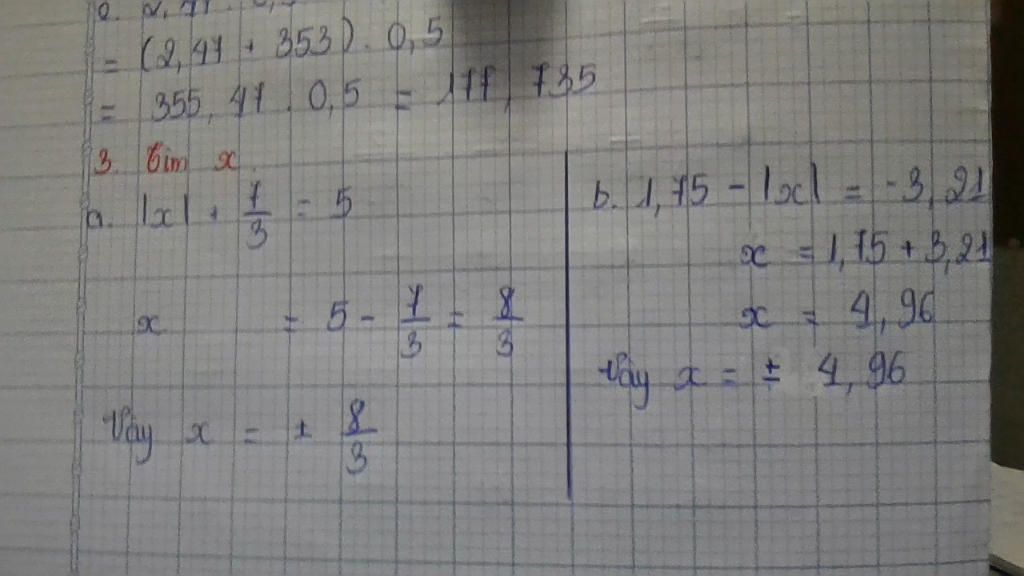 = (2,47 + 353) . 0,5
= 355,47 . 0,5 = 177,735
3. Tìm x.
a. |x| + 7/3 = 5
x = 5 - 7/3 = 8/3
Vậy x = ± 8/3
b. 1,75 - |x| = -3,21
x = 1,75 + 3,21
x = 4,96
Vậy x = ± 4,96